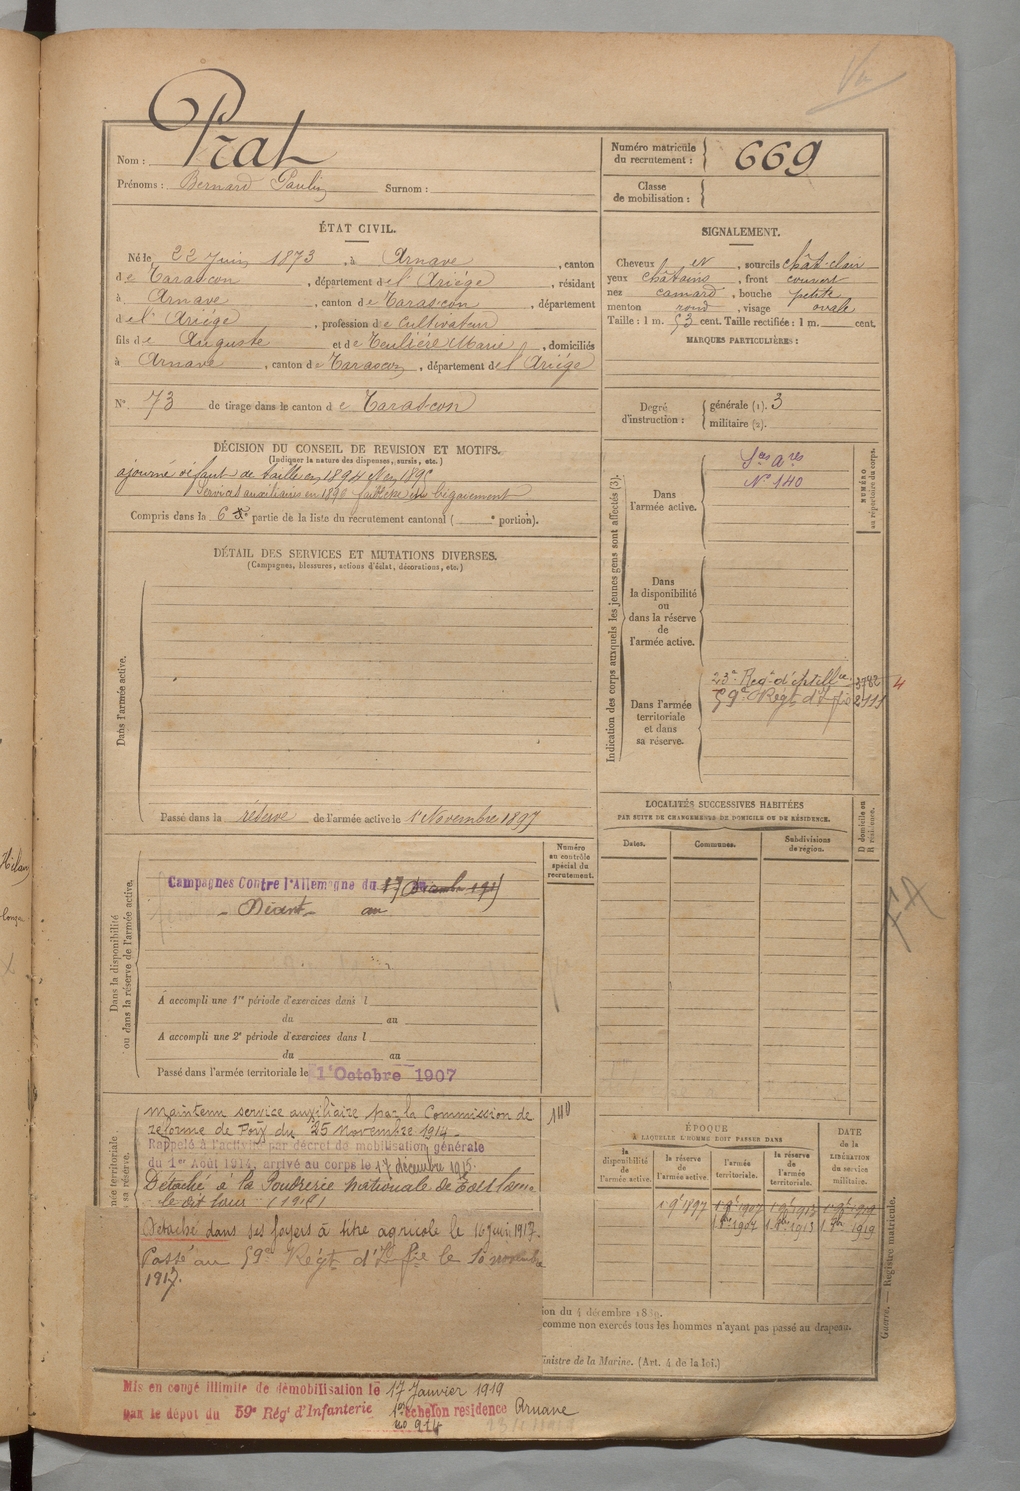 Vu
Nom : Prat
Prénoms : Bernard Paulin Surnom :
Numéro matricule du recrutement : 669
Classe de mobilisation :
ÉTAT CIVIL.
Né le 22 Juin 1873, à Arnave, canton
de Tarascon, département de l'Ariège, résidant
à Arnave, canton de Tarascon, département
de l'Ariège, profession de Cultivateur
fils de Auguste et de Teulière Marie, domiciliés
à Arnave, canton de Tarascon, département de l'Ariège
N° 73 de tirage dans le canton de Tarascon
SIGNALEMENT.
Cheveux et, sourcils chât-clair
yeux châtains, front couvert
nez camard, bouche petite
menton rond, visage ovale
Taille : 1 m. 53 cent. Taille rectifiée : 1 m. cent.
MARQUES PARTICULIÈRES :
Degré d'instruction : générale (1). 3
militaire (2).
DÉCISION DU CONSEIL DE REVISION ET MOTIFS.
(Indiquer la nature des dispenses, sursis, etc.)
ajourné défaut de taille en 1894 et en 1895
Services auxiliaires en 1896 faiblesse bégaiement
Compris dans la 6e partie de la liste du recrutement cantonal ( e portion).
DÉTAIL DES SERVICES ET MUTATIONS DIVERSES.
(Campagnes, blessures, actions d'éclat, décorations, etc.)
Dans l'armée active.
Passé dans la réserve de l'armée active le 1er Novembre 1897
Indication des corps auxquels les jeunes gens sont affectés (3).
NUMÉRO au répertoire du corps.
Dans l'armée active.
Ses Ares
N° 140
Dans la disponibilité ou dans la réserve de l'armée active.
Dans l'armée territoriale et dans sa réserve.
23e Regt d'Artillie 3782 4
59e Régt d'Inf ie 2111
LOCALITÉS SUCCESSIVES HABITÉES
PAR SUITE DE CHANGEMENTS DE DOMICILE OU DE RÉSIDENCE.
Dates. Communes. Subdivisions de région. D domicile ou R résidence.
Dans la disponibilité ou dans la réserve de l'armée active.
Numéro au contrôle spécial du recrutement.
Campagnes Contre l'Allemagne du 17 décembre 1915
Néant au
A accompli une 1re période d'exercices dans l
du au
A accompli une 2e période d'exercices dans l
du au
Passé dans l'armée territoriale le 1er Octobre 1907
FA
maintenu service auxiliaire par la Commission de
réforme de Foix du 25 novembre 1914.
140
Rappelé à l'activité par décret de mobilisation générale
du 1er Août 1914, arrivé au corps le 17 décembre 1915.
Détaché à la Poudrerie Nationale de Toulouse
le dit jour
Détaché dans ses foyers à titre agricole le 16 juin 1917.
Passé au 59e Régt d'Inf ie le 10 novembre
1917.
ÉPOQUE
À LAQUELLE L'HOMME DOIT PASSER DANS
la disponibilité de l'armée active.
la réserve de l'armée active.
l'armée territoriale.
la réserve de l'armée territoriale.
DATE de la LIBÉRATION du service militaire.
1 9bre 1897 1 9bre 1907 1 9bre 1913 1 9bre 1919
1 8bre 1907 1 8bre 1913 1 8bre 1919
ion du 4 décembre 1889.
comme non exercés tous les hommes n'ayant pas passé au drapeau.
inistre de la Marine. (Art. 4 de la loi.)
Guerre. — Registre matricule.
Mis en congé illimité de démobilisation le 17 Janvier 1919
par le dépôt du 59e Régt d'Infanterie 1er échelon résidence Arnave
no 914